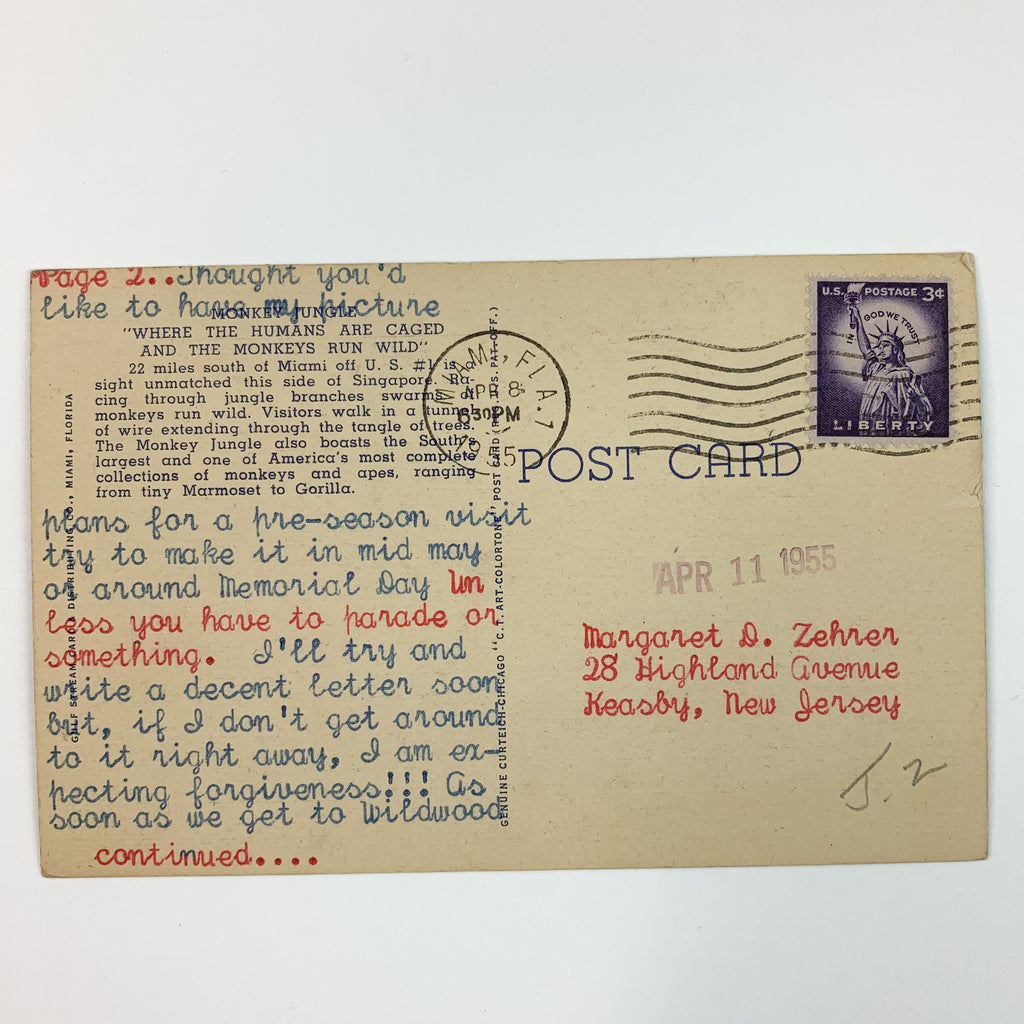 Page 2..Thought you'd
like to have my picture
MONKEY JUNGLE
"WHERE THE HUMANS ARE CAGED
AND THE MONKEYS RUN WILD"
22 miles south of Miami off U. S. #1 is a
sight unmatched this side of Singapore. Ra-
cing through jungle branches swarms of
monkeys run wild. Visitors walk in a tunnel
of wire extending through the tangle of trees.
The Monkey Jungle also boasts the South's
largest and one of America's most complete
collections of monkeys and apes, ranging
from tiny Marmoset to Gorilla.
plans for a pre-season visit
try to make it in mid may
or around Memorial Day Un
less you have to parade or
something. I'll try and
write a decent letter soon
but, if I don't get around
to it right away, I am ex-
pecting forgiveness!!! As
soon as we get to Wildwood
continued....
GULF STREAM CARD & DISTRIBUTING CO., MIAMI, FLORIDA
GENUINE CURTEICH-CHICAGO "C. T. ART-COLORTONE" POST CARD (REG. U.S. PAT. OFF.)
MIAMI, FLA. 1
APR 8
630PM
1955
U.S. POSTAGE 3¢
IN GOD WE TRUST
LIBERTY
POST CARD
APR 11 1955
Margaret D. Zehrer
28 Highland Avenue
Keasby, New Jersey
J. 2